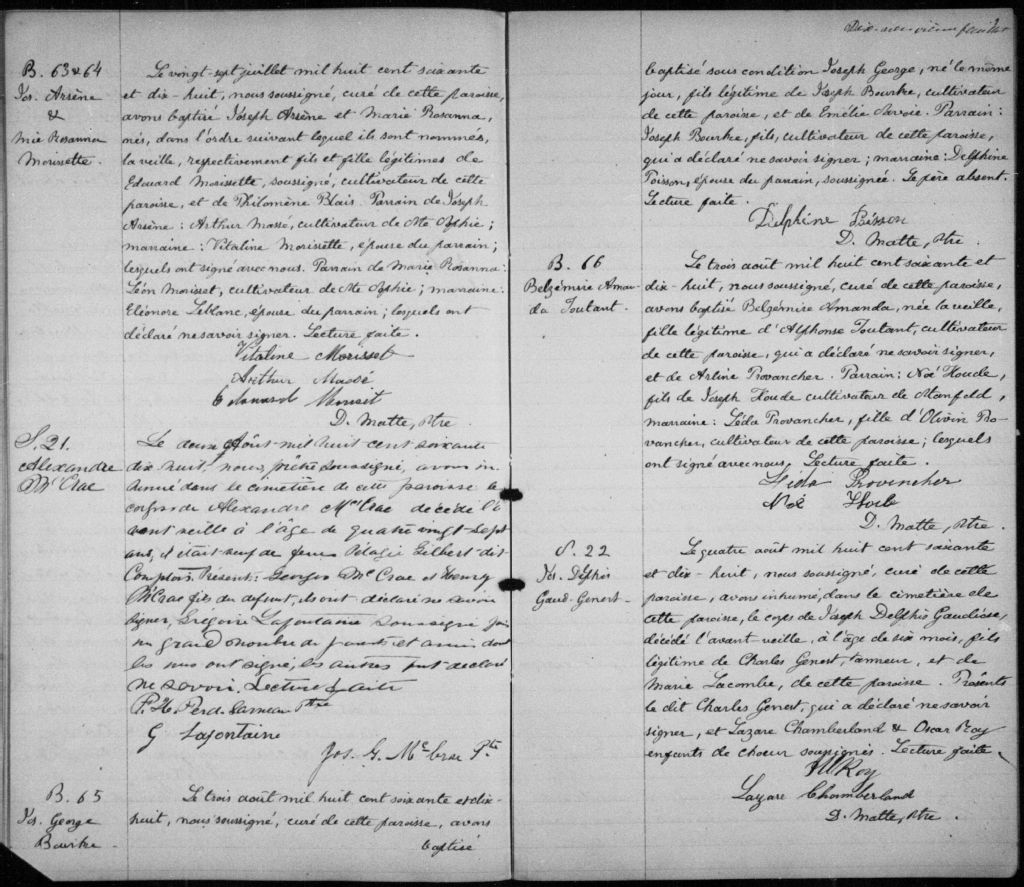 B. 63 & 64
Jos. Arsène
&
Mie Rosanna
Morissette.
Le vingt-sept juillet mil huit cent soixante
et dix-huit, nous soussigné, curé de cette paroisse,
avons baptisé Joseph Arsène et Marie Rosanna,
nés, dans l'ordre suivant lequel ils sont nommés,
la veille, respectivement fils et fille légitimes de
Edouard Morissette, soussigné, cultivateur de cette
paroisse, et de Philomène Blais. Parrain de Joseph
Arsène : Arthur Massé, cultivateur de Ste Sophie ;
marraine : Vitaline Morissette, épouse du parrain ;
lesquels ont signé avec nous. Parrain de Marie Rosanna :
Léon Morisset, cultivateur de Ste Sophie ; marraine :
Eléonore Leblanc, épouse du parrain ; lesquels ont
déclaré ne savoir signer. Lecture faite.
Vitaline Morisset
Arthur Massé
Edouard
D. Matte, Ptre.
S. 21.
Alexandre
McCrae
Le deux Août mil huit cent soixante
dix huit, nous, prêtre soussigné, avons in
humé dans le cimetière de cette paroisse le
corps de Alexandre McCrae décédé l'a
vant veille à l'âge de quatre vingt-sept
ans, il était veuf de feue Pélagie Gilbert dit
Comptois. Présent : Georges McCrae et Henry
McCrae fils du defunt, ils ont déclaré ne savoir
signer, Grégoire Lafontaine soussigné
un grand nombre de parents et amis dont
les uns ont signé, les autres ont déclaré
ne savoir. Lecture faite
Ptre
G Lafontaine
Jos. G. McCrae Ptr
B. 65
Jos. George
Bourke
Le trois août mil huit cent soixante et dix-
huit, nous soussigné, curé de cette paroisse, avons
baptisé
Dix-neuvième feuillet
baptisé sous condition Joseph George, né le même
jour, fils légitime de Joseph Bourke, cultivateur
de cette paroisse, et de Emélie Savoie. Parrain :
Joseph Bourke, fils, cultivateur de cette paroisse,
qui a déclaré ne savoir signer ; marraine : Delphine
Poisson, épouse du parrain, soussignée. Le père absent.
Lecture faite.
Delphine Poisson
D. Matte, Ptre.
B. 66
Belzémire Aman-
da Toutant.
Le trois août mil huit cent soixante et
dix-huit, nous soussigné, curé de cette paroisse,
avons baptisé Belzémire Amanda, née la veille,
fille légitime d'Alphonse Toutant, cultivateur
de cette paroisse, qui a déclaré ne savoir signer,
et de Arline Provancher. Parrain : Noé Houde,
fils de Joseph Houde cultivateur de Stanfold,
marraine : Léda Provancher, fille d'Olivin Pro-
vancher, cultivateur de cette paroisse ; lesquels
ont signé avec nous. Lecture faite.
Léda Provencher
Noé
D. Matte, Ptre.
S. 22
Jos. Delphis
Gaud. Genest
Le quatre août mil huit cent soixante
et dix-huit, nous soussigné, curé de cette
paroisse, avons inhumé, dans le cimetière de
cette paroisse, le corps de Joseph Delphis Gaudiose,
décédé l'avant veille, à l'âge de six mois, fils
légitime de Charles Genest, tanneur, et de
Marie Lacombe, de cette paroisse. Présents
le dit Charles Genest, qui a déclaré ne savoir
signer, et Lazare Chamberland & Oscar Roy
enfants de choeur soussignés. Lecture faite.
Roy
Lazare Chamberland
D. Matte, Ptre.